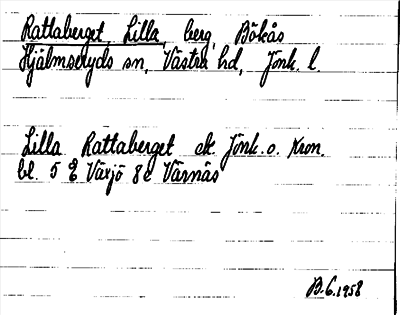 Rattaberget, Lilla, berg, Bökås
Hjälmseryds sn, Västra hd, Jönk. l.
Lilla Rattaberget ek Jönk. o. Kron.
bl. 5 E Växjö 8c Värnäs
B.G.1958